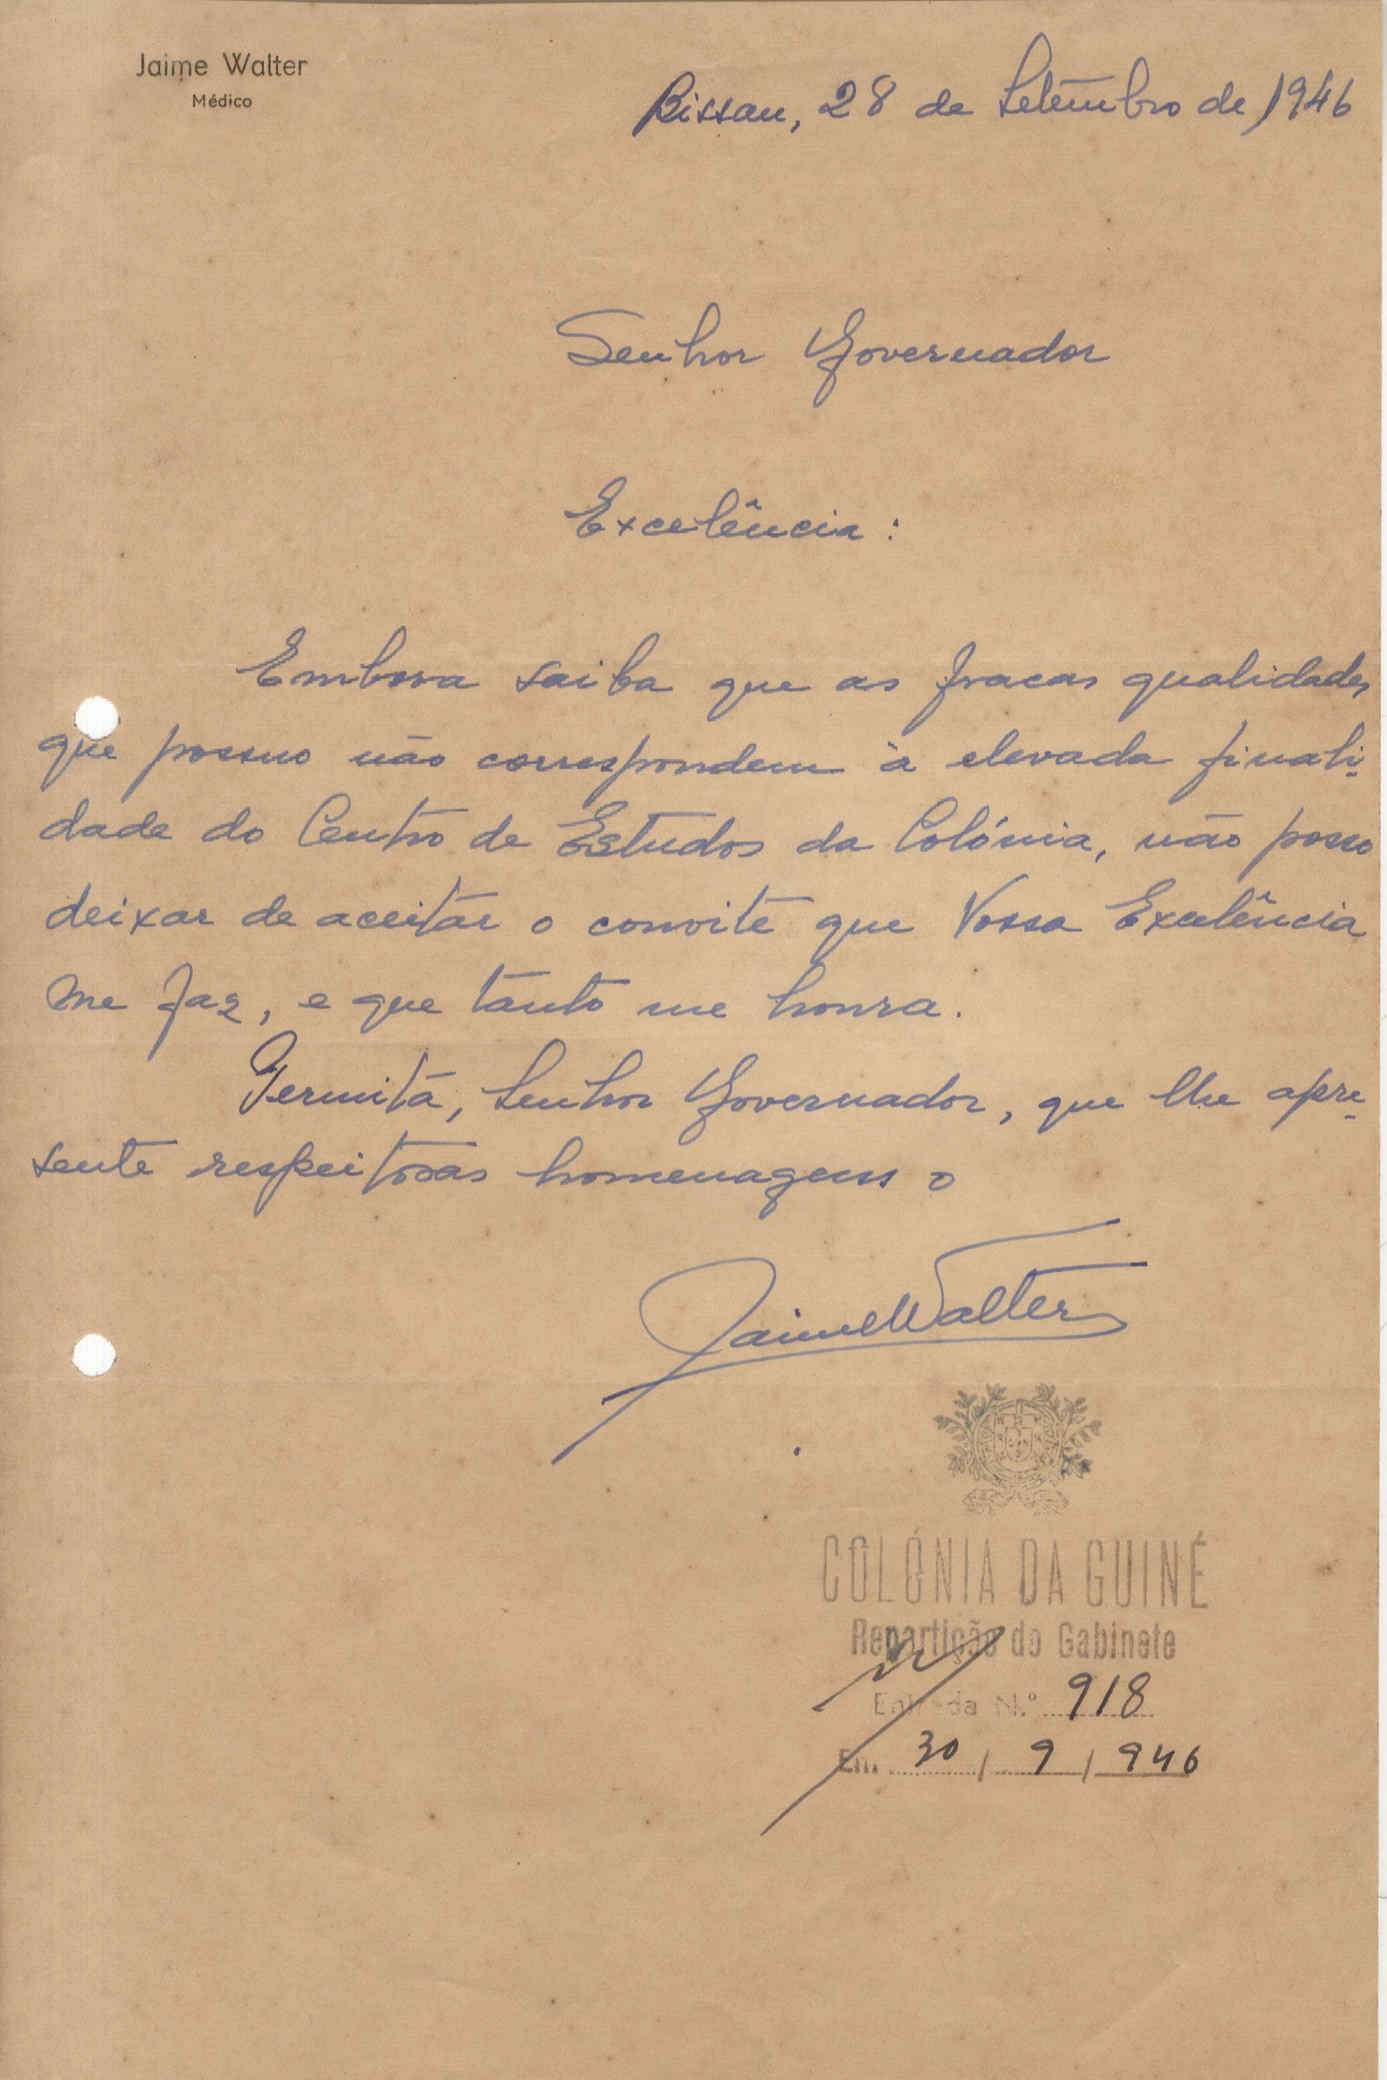 Jaime Walter
Médico
Bissau, 28 de Setembro de 1946
Senhor Governador
Excelência:
Embora saiba que as fracas qualidades
que possuo não correspondem à elevada finali-
dade do Centro de Estudos da Colónia, não posso
deixar de aceitar o convite que Vossa Excelência
me faz, e que tanto me honra.
Permita, Senhor Governador, que lhe apre-
sente respeitosas homenagens o
Jaime Walter
COLÓNIA DA GUINÉ
Repartição do Gabinete
Entrada N.º 918
Em 30 / 9 / 946